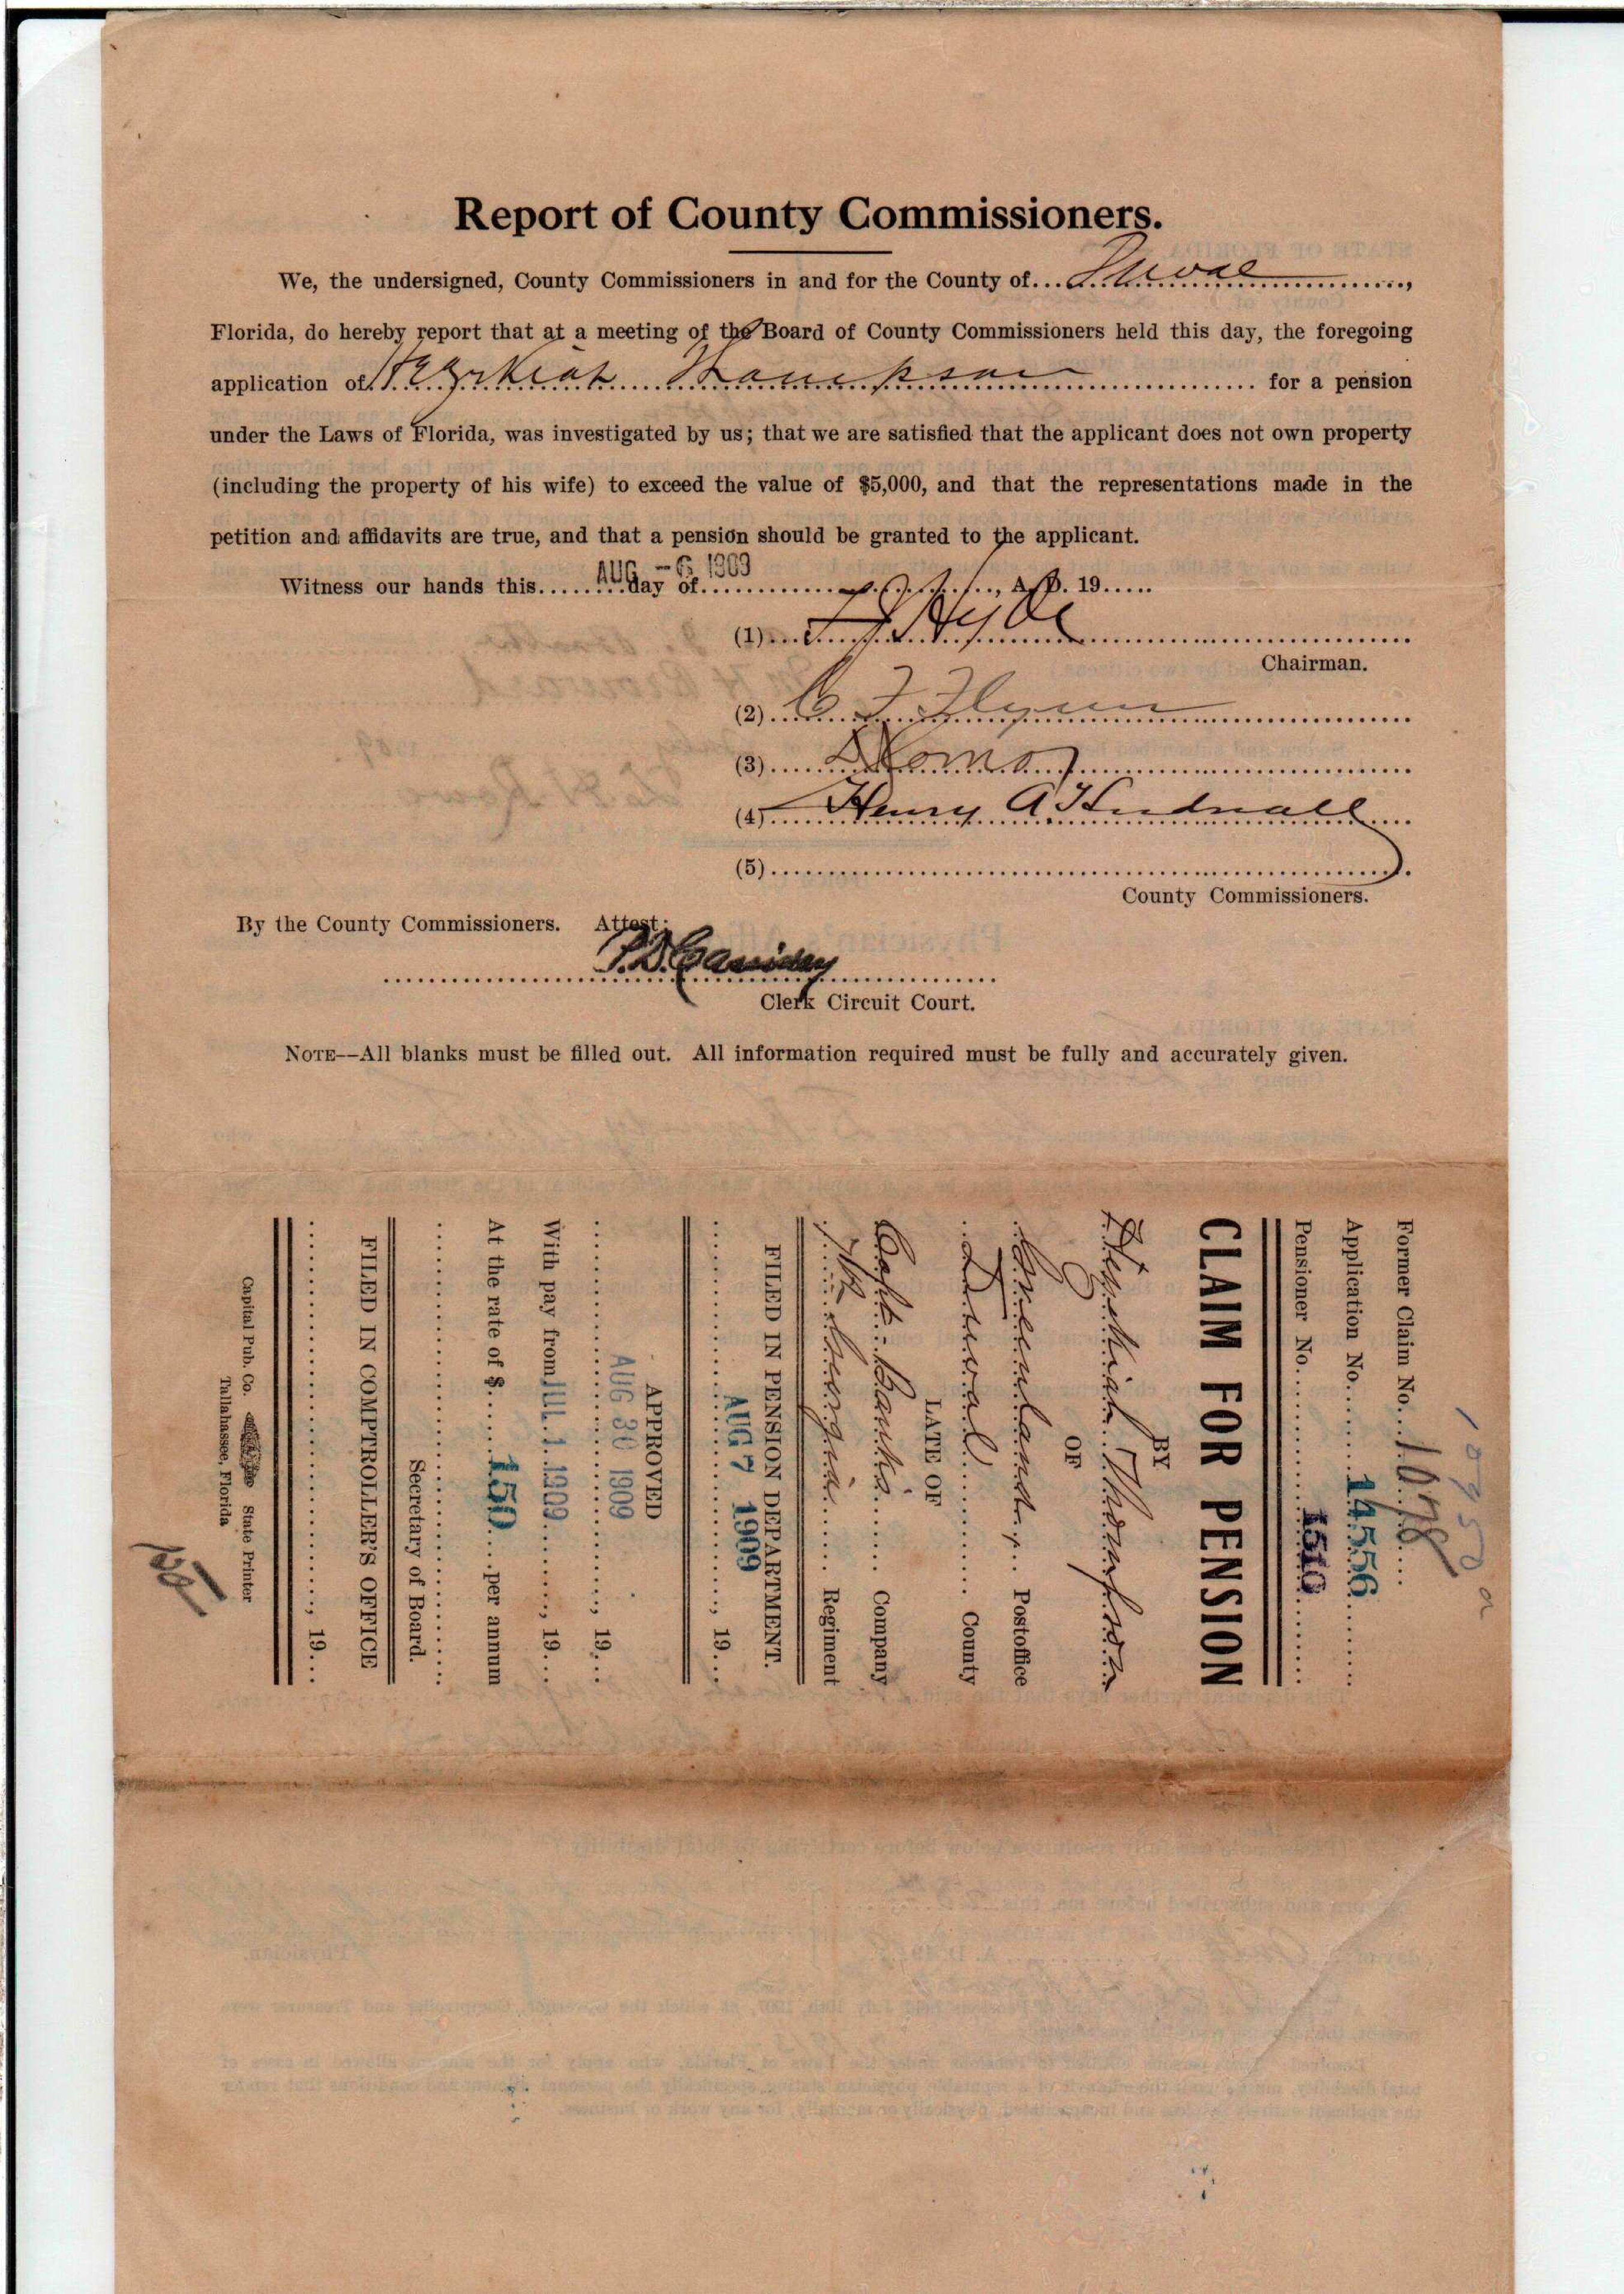 Report of County Commissioners.
We, the undersigned, County Commissioners in and for the County of... Duval ...,
Florida, do hereby report that at a meeting of the Board of County Commissioners held this day, the foregoing
application of Hezekiah Thompson ... for a pension
under the Laws of Florida, was investigated by us; that we are satisfied that the applicant does not own property
(including the property of his wife) to exceed the value of $5,000, and that the representations made in the
petition and affidavits are true, and that a pension should be granted to the applicant.
AUG - 6 1909
Witness our hands this........day of..............., A. D. 19.....
(1) Hyde
Chairman.
(2) C F Flynn
(3)
(4) Henry A Hudnall
(5)
County Commissioners.
By the County Commissioners. Attest:
P.D. Cassidey
Clerk Circuit Court.
NOTE--All blanks must be filled out. All information required must be fully and accurately given.
Former Claim No. 1098
Application No. 14556
Pensioner No. 1510
CLAIM FOR PENSION
BY
Hezekiah Thompson
OF
Greenland, Postoffice
Duval County
LATE OF
Capt. Banks Company
7th Georgia Regiment
FILED IN PENSION DEPARTMENT.
AUG 7 1909
..., 19...
APPROVED
AUG 30 1909
..., 19...
With pay from JUL 1 1909 ..., 19...
At the rate of $ 150 ... per annum
Secretary of Board.
FILED IN COMPTROLLER'S OFFICE
..., 19...
Capital Pub. Co. State Printer
Tallahassee, Florida